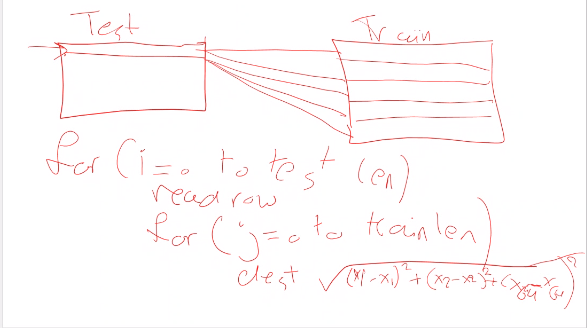 Test
Train
for (i=0 to test len)
read row
for (j=0 to train len)
dest √(x1-x1)²+(x2-x2)²+(x64-x64)²